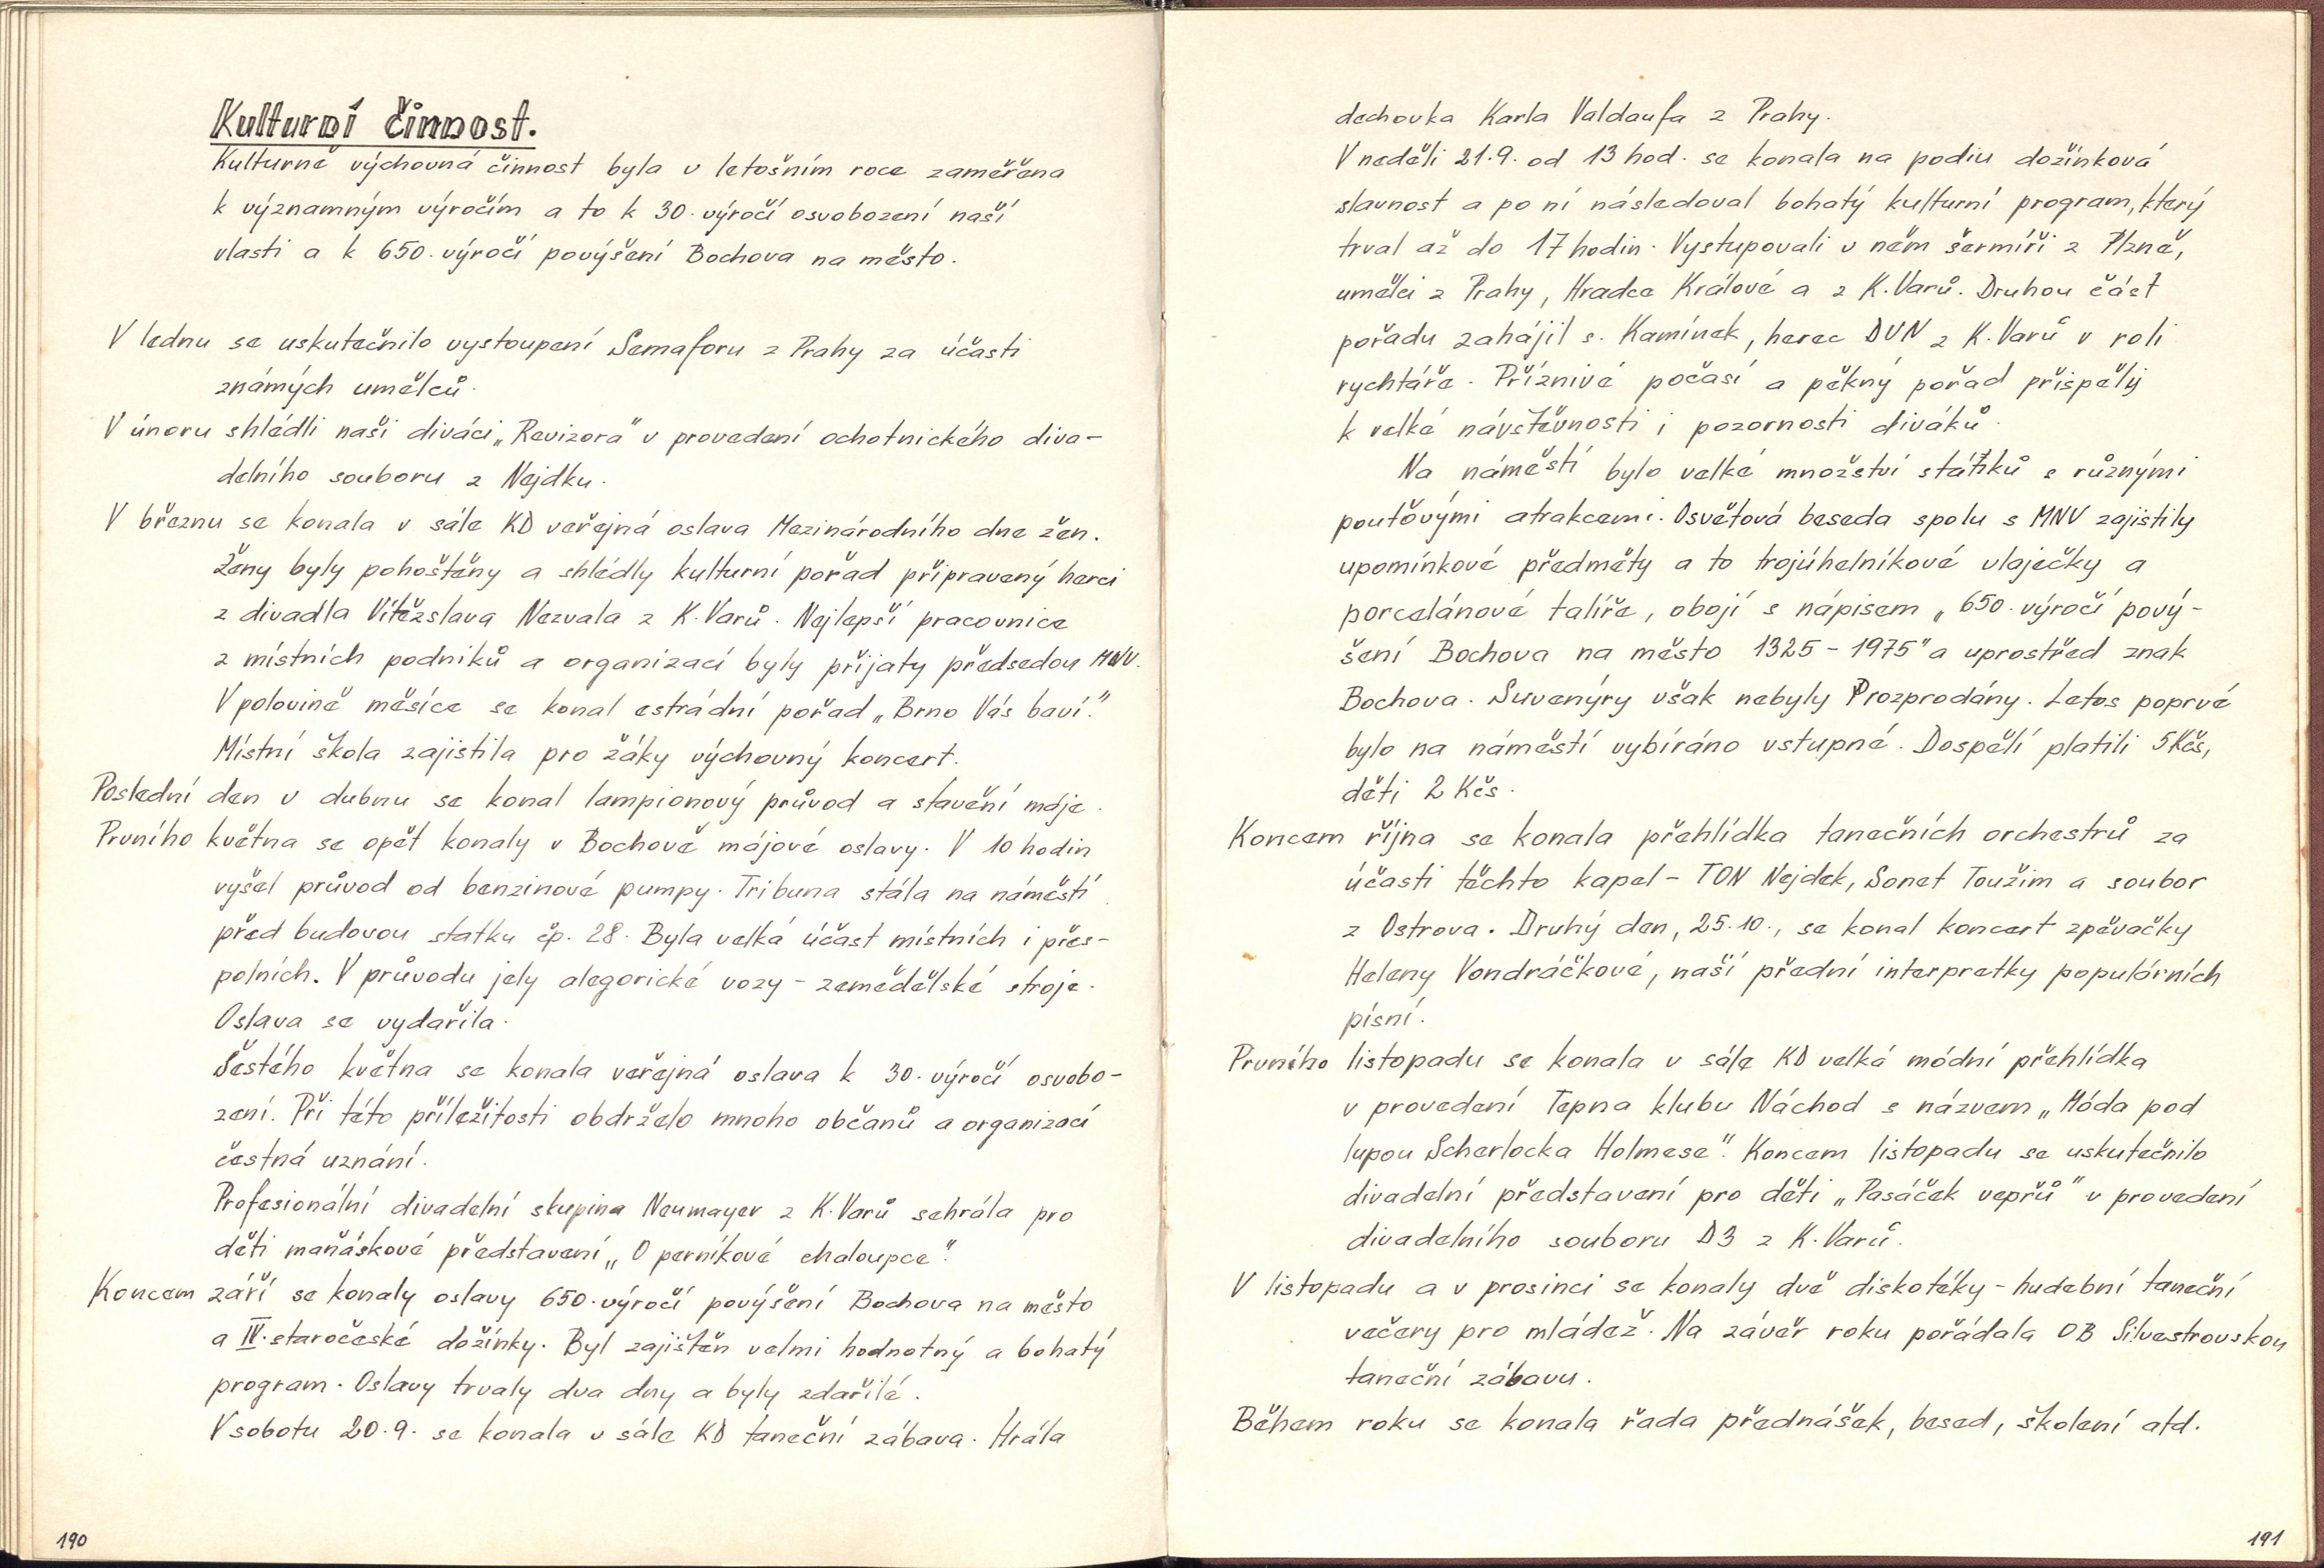 Kulturní činnost.
Kulturně výchovná činnost byla v letošním roce zaměřena
k významným výročím a to k 30. výročí osvobození naší
vlasti a k 650. výročí povýšení Bochova na město.
V lednu se uskutečnilo vystoupení Semaforu z Prahy za účasti
známých umělců.
V únoru shlédli naši diváci „Revizora" v provedení ochotnického diva-
delního souboru z Nejdku.
V březnu se konala v sále KD veřejná oslava Mezinárodního dne žen.
Ženy byly pohoštěny a shlédly kulturní pořad připravený herci
z divadla Vítězslava Nezvala z K. Varů. Nejlepší pracovnice
z místních podniků a organizací byly přijaty předsedou MNV.
V polovině měsíce se konal estrádní pořad „Brno Vás baví."
Místní škola zajistila pro žáky výchovný koncert.
Poslední den v dubnu se konal lampionový průvod a stavění máje.
Prvního května se opět konaly v Bochově májové oslavy. V 10 hodin
vyšel průvod od benzinové pumpy. Tribuna stála na náměstí
před budovou statku čp. 28. Byla velká účast místních i přes-
polních. V průvodu jely alegorické vozy - zemědělské stroje.
Oslava se vydařila.
Šestého května se konala veřejná oslava k 30. výročí osvobo-
zení. Při této příležitosti obdrželo mnoho občanů a organizací
čestná uznání.
Profesionální divadelní skupina Neumayer z K. Varů sehrála pro
děti maňáskové představení „O perníkové chaloupce".
Koncem září se konaly oslavy 650. výročí povýšení Bochova na město
a IV. staročeské dožínky. Byl zajištěn velmi hodnotný a bohatý
program. Oslavy trvaly dva dny a byly zdařilé.
V sobotu 20.9. se konala v sále KD taneční zábava. Hrála
190
dechovka Karla Valdaufa z Prahy.
V neděli 21.9. od 13 hod. se konala na podiu dožínková
slavnost a po ní následoval bohatý kulturní program, který
trval až do 17 hodin. Vystupovali v něm šermíři z Plzně,
umělci z Prahy, Hradce Králové a z K. Varů. Druhou část
pořadu zahájil s. Kamínek, herec DVN z K. Varů v roli
rychtáře. Příznivé počasí a pěkný pořad přispěly
k velké návštěvnosti i pozornosti diváků.
Na náměstí bylo velké množství stánků s různými
pouťovými atrakcemi. Osvětová beseda spolu s MNV zajistily
upomínkové předměty a to trojúhelníkové vlaječky a
porcelánové talíře, obojí s nápisem „650. výročí pový-
šení Bochova na město 1325 - 1975" a uprostřed znak
Bochova. Suvenýry však nebyly rozprodány. Letos poprvé
bylo na náměstí vybíráno vstupné. Dospělí platili 5 Kčs,
děti 2 Kčs.
Koncem října se konala přehlídka tanečních orchestrů za
účasti těchto kapel - TON Nejdek, Sonet Toužim a soubor
z Ostrova. Druhý den, 25.10., se konal koncert zpěvačky
Heleny Vondráčkové, naší přední interpretky populárních
písní.
Prvního listopadu se konala v sále KD velká módní přehlídka
v provedení Tepna klubu Náchod s názvem „Móda pod
lupou Scherlocka Holmese". Koncem listopadu se uskutečnilo
divadelní představení pro děti „Pasáček vepřů" v provedení
divadelního souboru D3 z K. Varů.
V listopadu a v prosinci se konaly dvě diskotéky - hudební taneční
večery pro mládež. Na závěr roku pořádala OB Silvestrovskou
taneční zábavu.
Během roku se konala řada přednášek, besed, školení atd.
191